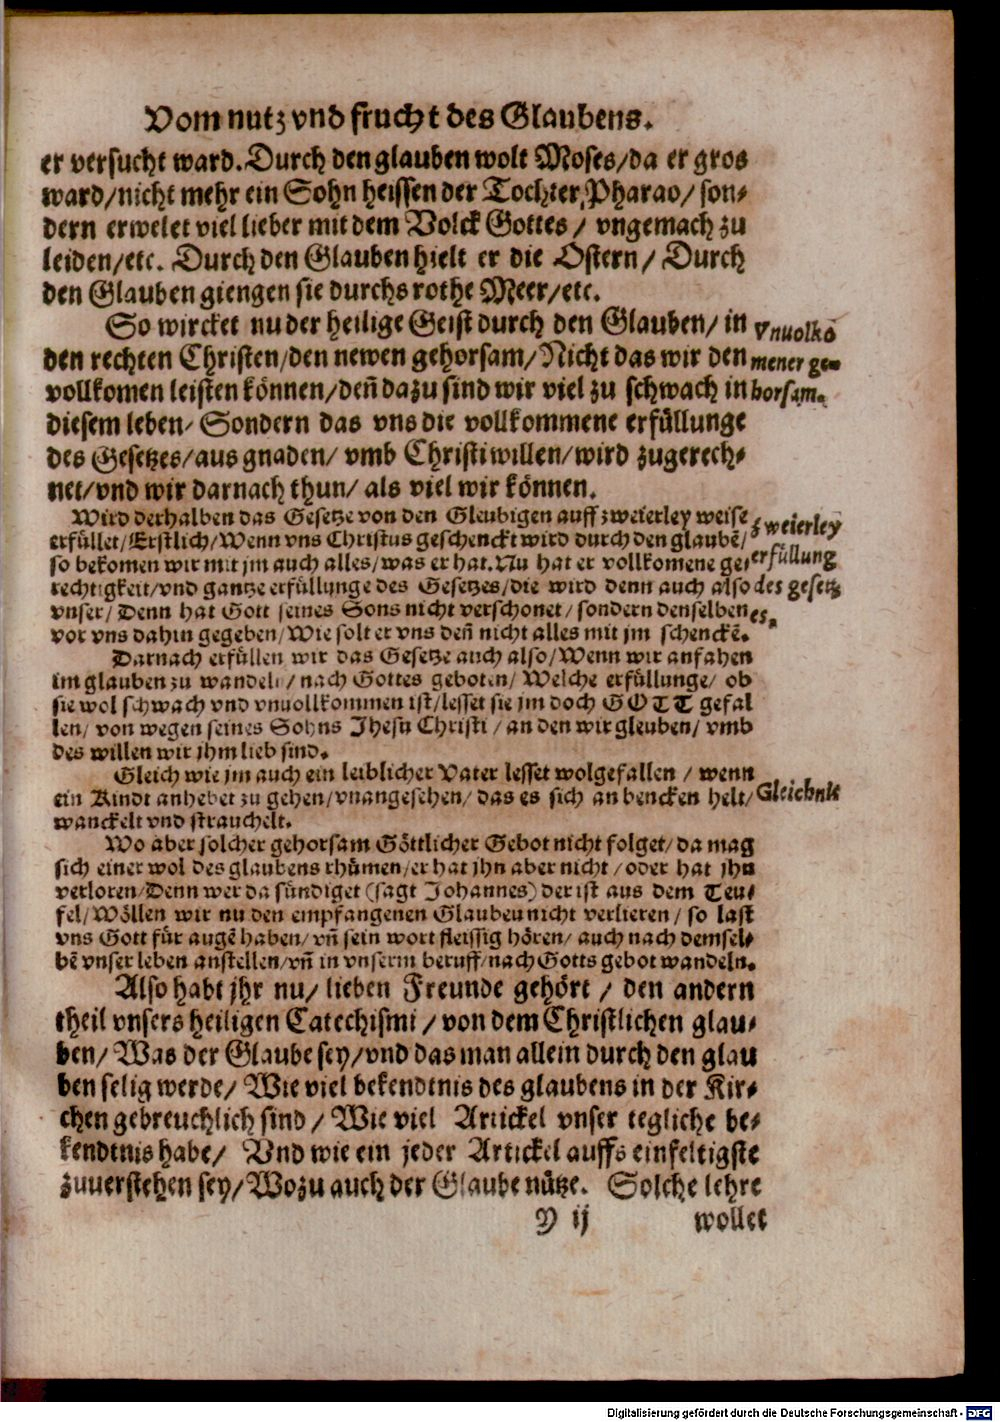 Vom nutz vnd frucht des Glaubens.
er versucht ward. Durch den glauben wolt Moses/da er gros
ward/nicht mehr ein Sohn heissen der Tochter Pharao/ son-
dern erwelet viel lieber mit dem Volck Gottes / vngemach zu
leiden/etc. Durch den Glauben hielt er die Ostern/ Durch
den Glauben giengen sie durchs rothe Meer/etc.
So wircket nu der heilige Geist durch den Glauben/ in
den rechten Christen/den newen gehorsam/Nicht das wir den
vollkomen leisten können/deñ dazu sind wir viel zu schwach in
diesem leben/ Sondern das vns die vollkommene erfüllunge
des Gesetzes/aus gnaden/ vmb Christi willen/wird zugerech-
net/vnd wir darnach thun/ als viel wir können.
Vnuolkō
mener ge-
horsam.
Wird derhalben das Gesetze von den Gleubigen auff zweierley weise
erfüllet/Erstlich/Wenn vns Christus geschenckt wird durch den glaubē/
so bekomen wir mit jm auch alles/was er hat. Nu hat er vollkomene ge-
rechtigkeit/vnd gantze erfüllunge des Gesetzes/die wird denn auch also
vnser/ Denn hat Gott seines Sons nicht verschonet/ sondern denselben
vor vns dahin gegeben/Wie solt er vns deñ nicht alles mit jm schenckē.
zweierley
erfüllung
des gesetz
es.
Darnach erfüllen wir das Gesetze auch also/Wenn wir anfahen
im glauben zu wandeln/nach Gottes geboten/ Welche erfüllunge/ ob
sie wol schwach vnd vnuollkommen ist/lesset sie jm doch GOTT gefal
len/ von wegen seines Sohns Jhesu Christi / an den wir gleuben/ vmb
des willen wir jhm lieb sind.
Gleich wie jm auch ein leiblicher Vater lesset wolgefallen / wenn
ein Kindt anhebet zu gehen/vnangesehen/ das es sich an bencken helt/
wanckelt vnd strauchelt.
Gleichnis
Wo aber solcher gehorsam Göttlicher Gebot nicht folget/ da mag
sich einer wol des glaubens rhümen/er hat jhn aber nicht /oder hat jhn
verloren/Denn wer da sündiget (sagt Johannes) der ist aus dem Teu-
fel/Wöllen wir nu den empfangenen Glauben nicht verlieren/ so last
vns Gott für augē haben/ vñ sein wort fleissig hören/ auch nach demsel-
bē vnser leben anstellen/vñ in vnserm beruff/nach Gotts gebot wandeln.
Also habt jhr nu/ lieben Freunde gehört / den andern
theil vnsers heiligen Catechismi / von dem Christlichen glau-
ben/ Was der Glaube sey/vnd das man allein durch den glau
ben selig werde/ Wie viel bekendtnis des glaubens in der Kir-
chen gebreuchlich sind / Wie viel Artickel vnser tegliche be-
kendtnis habe/ Vnd wie ein jeder Artickel auffs einfeltigste
zuuerstehen sey/Wozu auch der Glaube nütze. Solche lehre
Y ij wollet
Digitalisierung gefördert durch die Deutsche Forschungsgemeinschaft - DFG